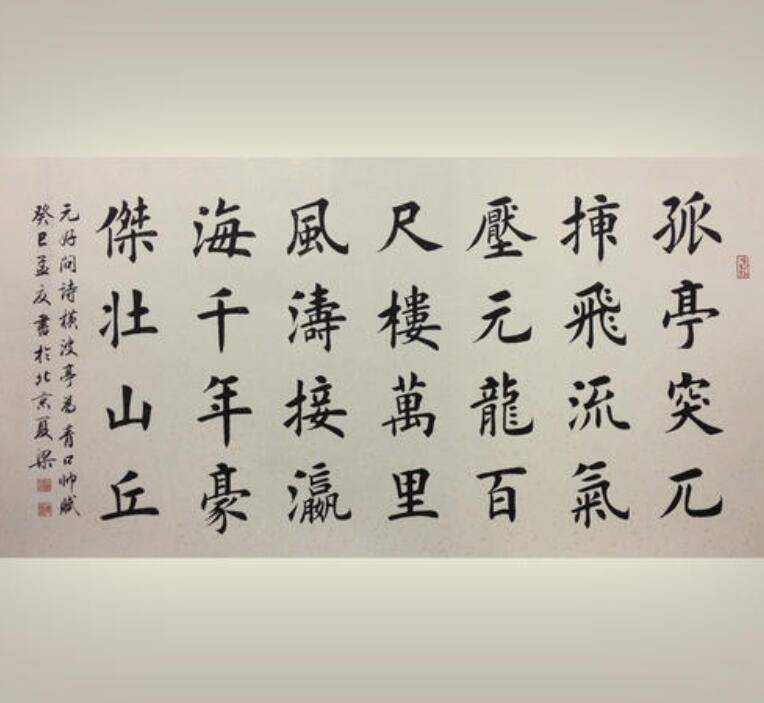 孤亭突兀
挿飛流氣
壓元龍百
尺樓萬里
風濤接瀛
海千年豪
傑壮山丘
元好问詩橫波亭為青口帅賦
癸巳孟夏書於北京夏梁